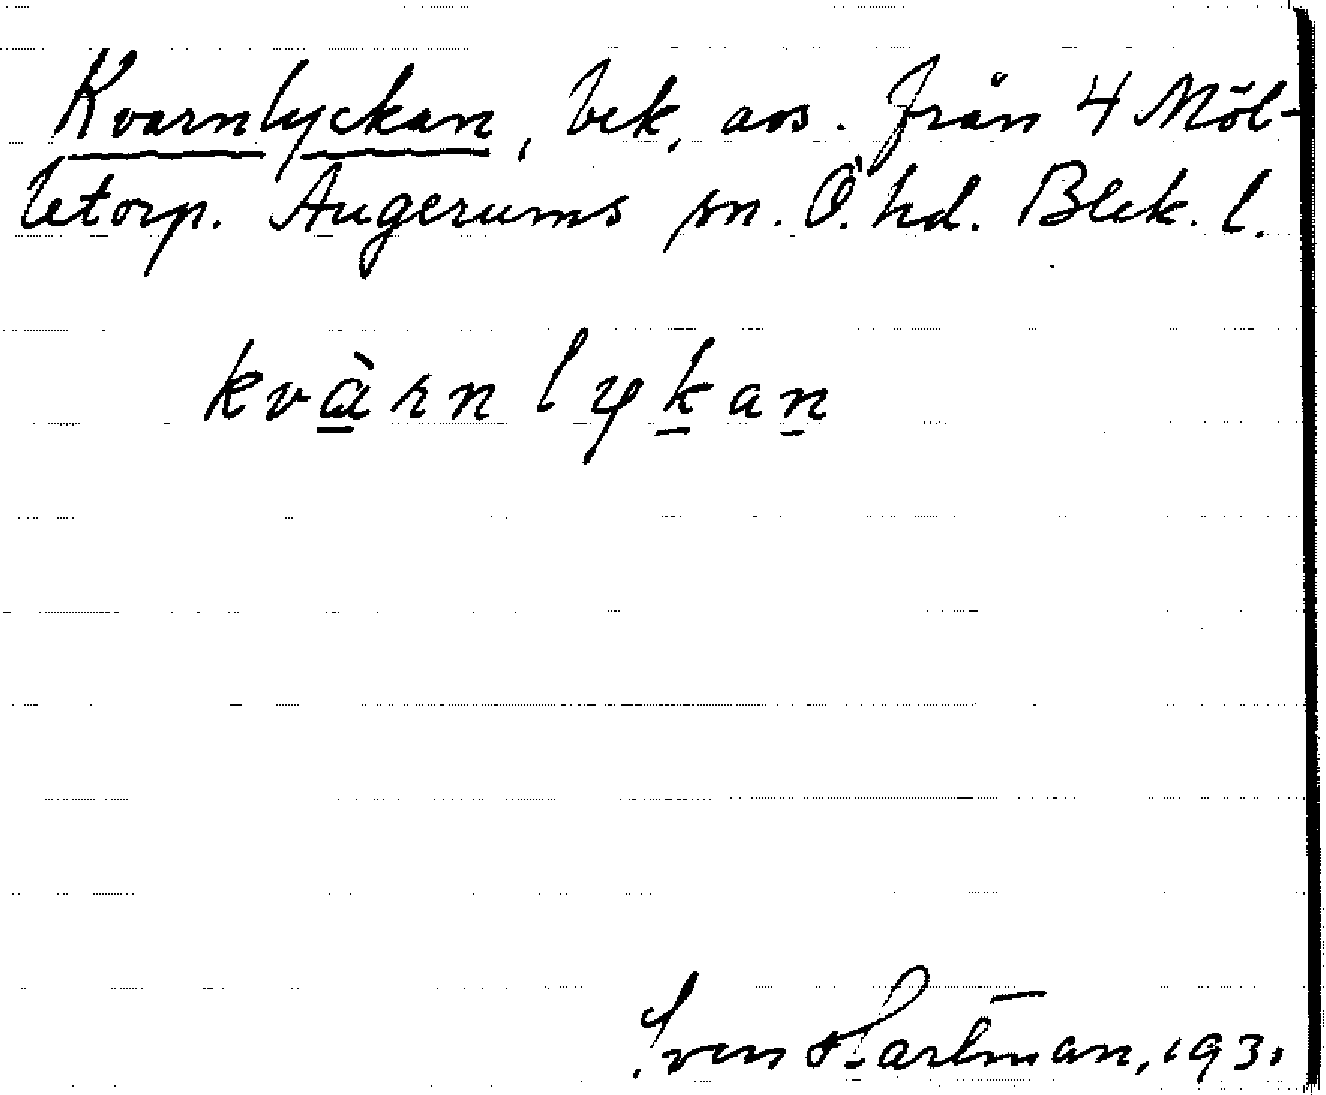 Kvarnlyckan, bek. avs. från 4 Möl-
letorp. Augerums sn. Ö. hd. Blek. l.
kvàrnlykan
Sven Hartman, 1931